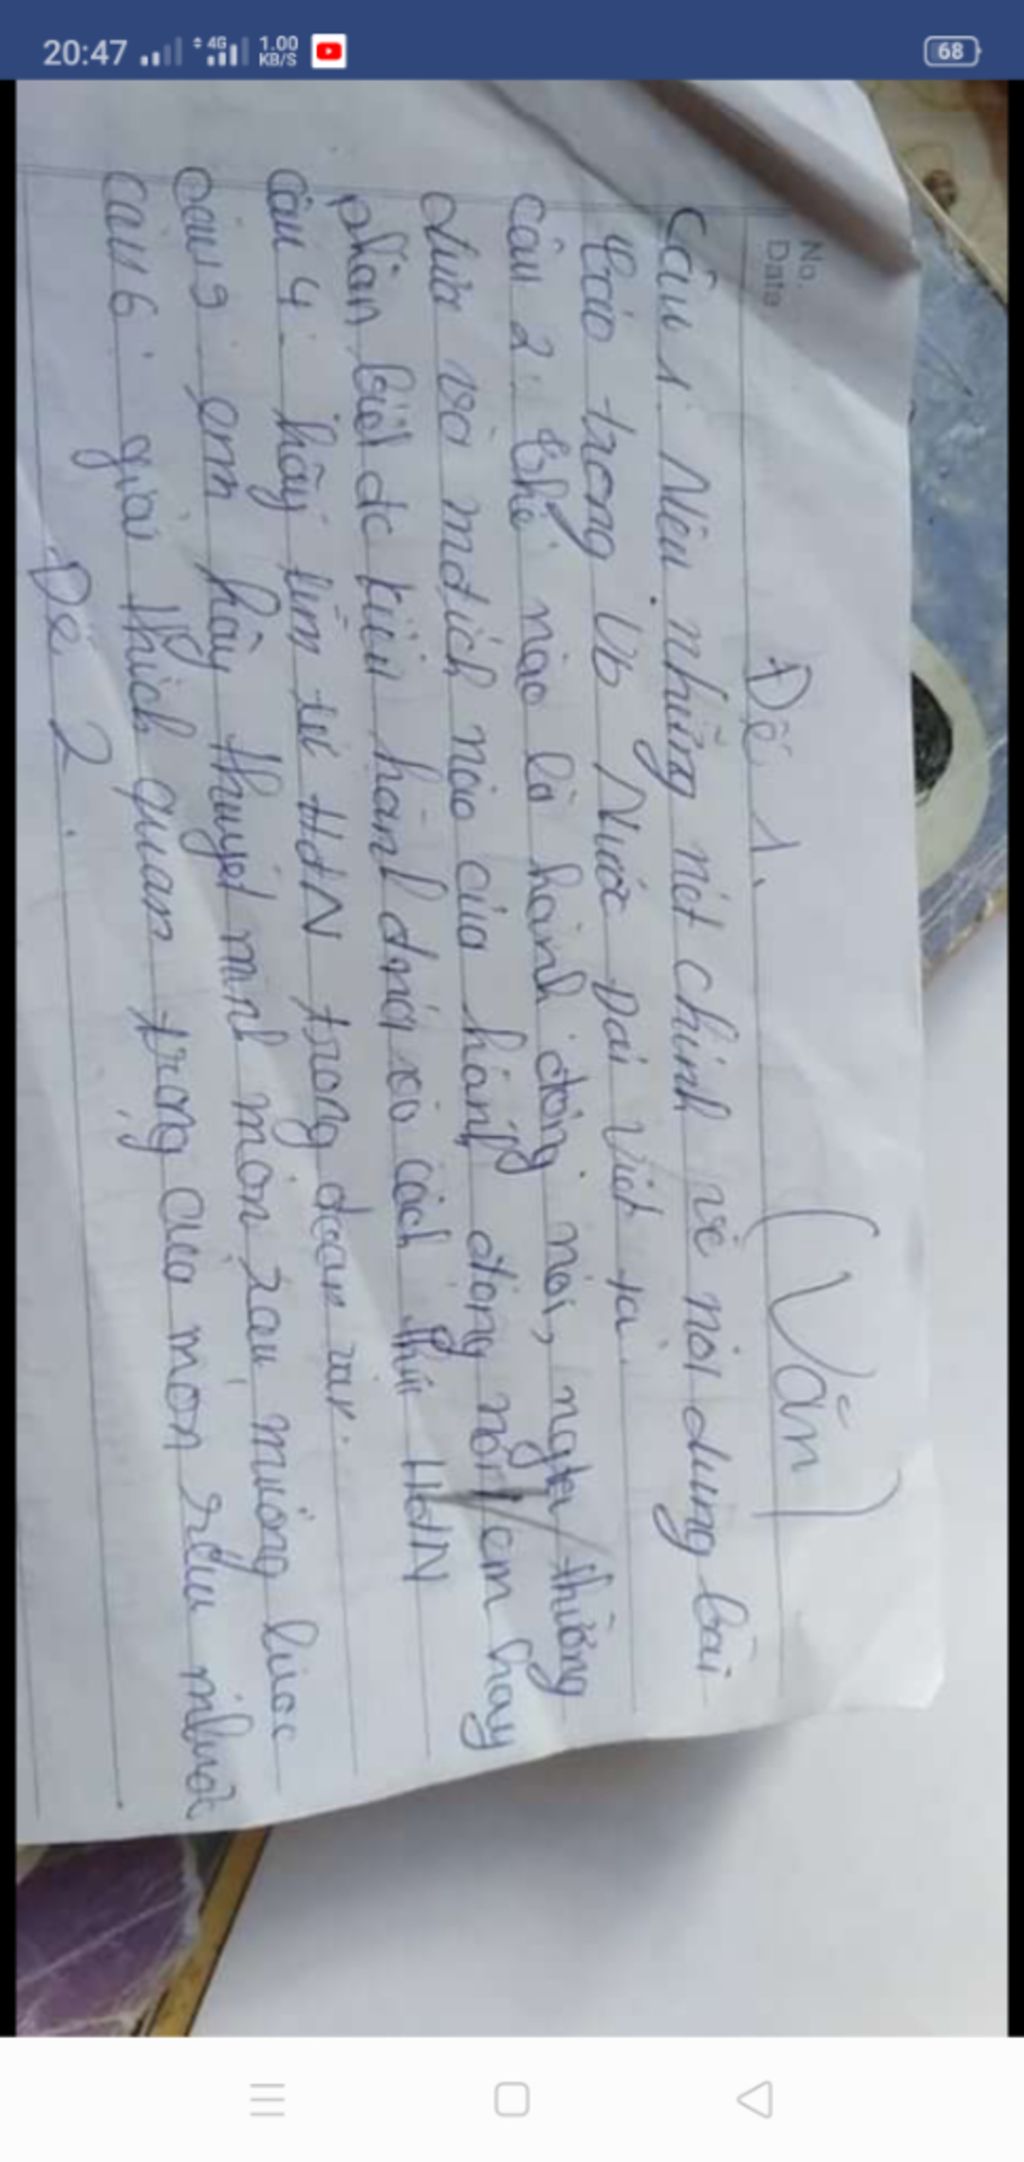 20:47 4G 1.00 KB/S 68
No.
Date
Đề 1. (Văn)
Câu 1. Nêu những nét chính về nội dung bài
Cáo trong Vb Nước Đại Việt ta.
Câu 2. thế nào là hành động nói, người ta/thường
dựa vào mđích nào của hành động nói/em hãy
phân biệt đc kiểu hành đnói và cách thức HĐN
Câu 4. hãy tìm từ HĐN trong đoạn văn.
Câu 5. em hãy thuyết minh món rau muống luộc
Câu 6. giải thích quan trọng của món rau
Đề 2.